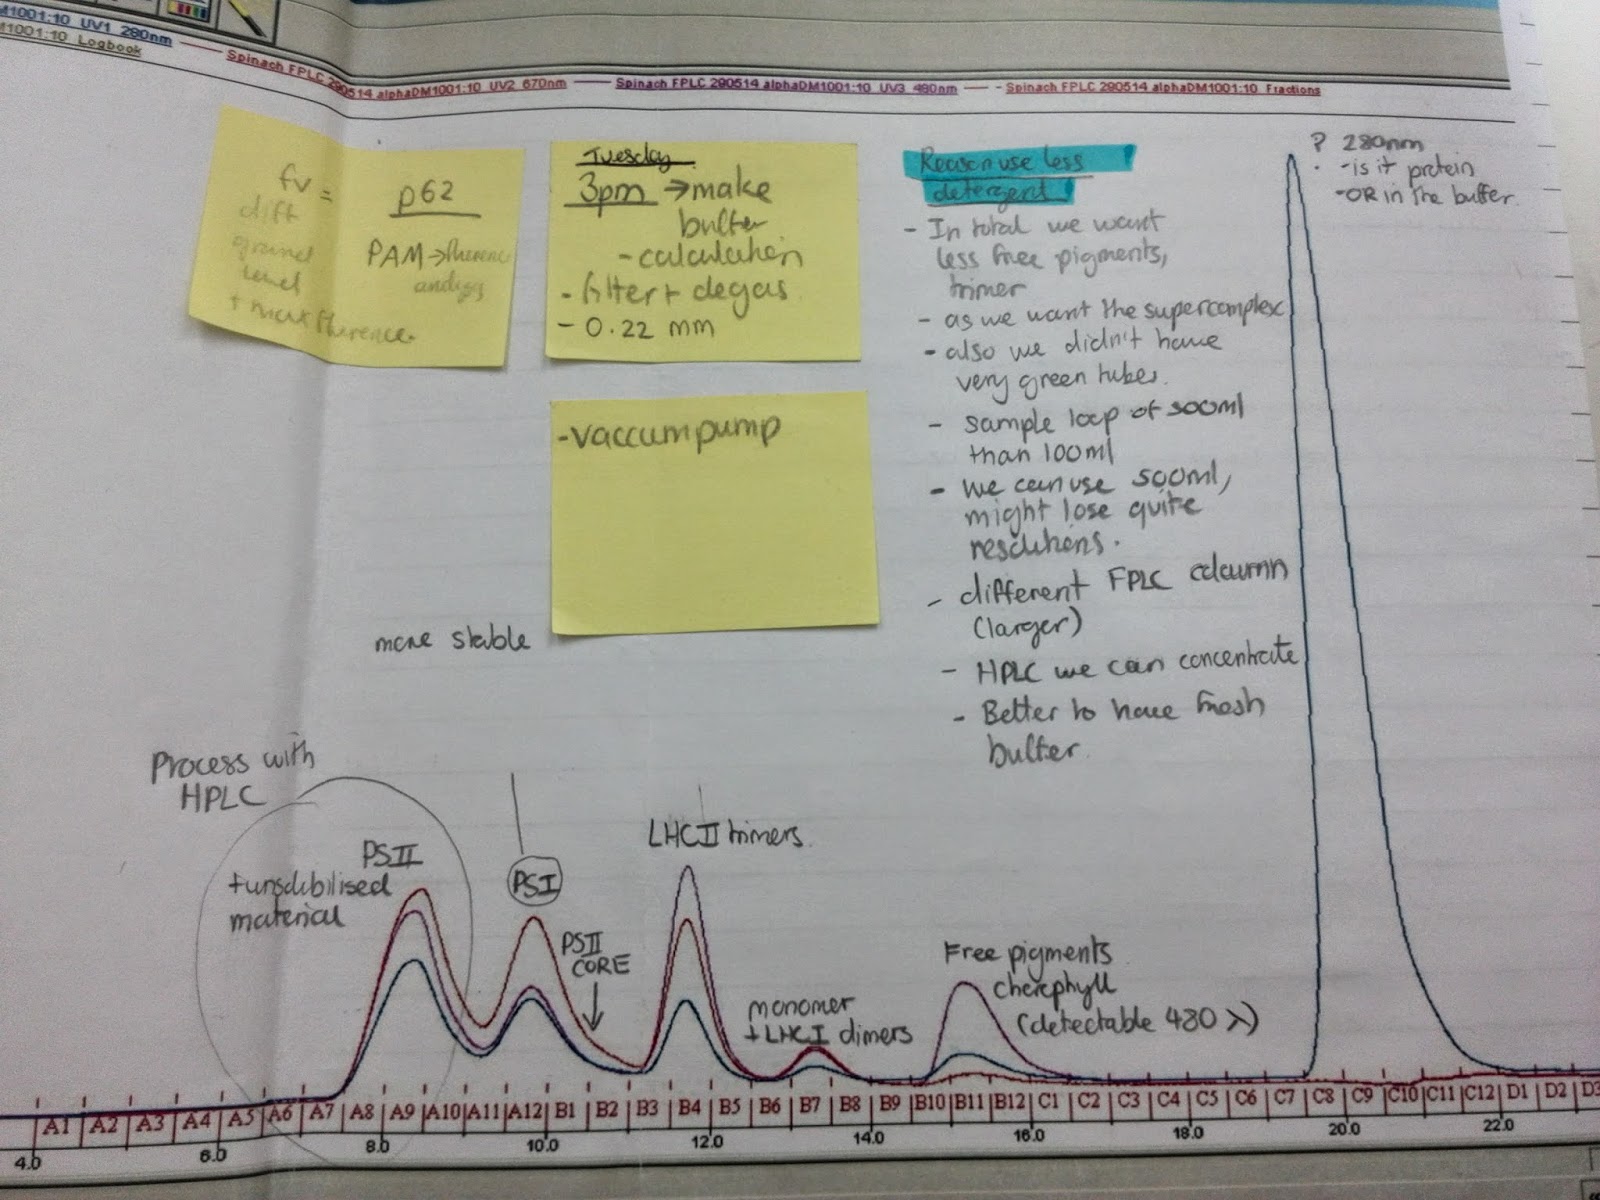 M1001:10 UV1 280nm
M1001:10 Logbook
Spinach FPLC 290514 alphaDM1001:10 UV2 670nm
Spinach FPLC 290514 alphaDM1001:10 UV3 480nm
Spinach FPLC 290514 alphaDM1001:10 Fractions
fv =
diff
level
+ max
p62
PAM →
Tuesday
3pm → make
buffer
- calculation
- filter + degas
- 0.22 mm
- vaccum pump
Reason use less
detergent
- In total we want
less free pigments,
trimer
- as we want the supercomplex
- also we didn't have
very green tubes.
- sample loop of 500ml
than 100ml
- we can use 500ml,
might lose quite
resolutions.
- different FPLC column
(larger)
- HPLC we can concentrate
- Better to have fresh
buffer.
? 280nm
- is it protein
- OR in the buffer.
more stable
Process with
HPLC
PSII
+ unsolubilised
material
PSI
PSII
CORE
LHCII trimers.
monomer
+ LHCI dimers
Free pigments
(detectable 480 λ)
A1 A2 A3 A4 A5 A6 A7 A8 A9 A10 A11 A12 B1 B2 B3 B4 B5 B6 B7 B8 B9 B10 B11 B12 C1 C2 C3 C4 C5 C6 C7 C8 C9 C10 C11 C12 D1 D2 D3
4.0 6.0 8.0 10.0 12.0 14.0 16.0 18.0 20.0 22.0